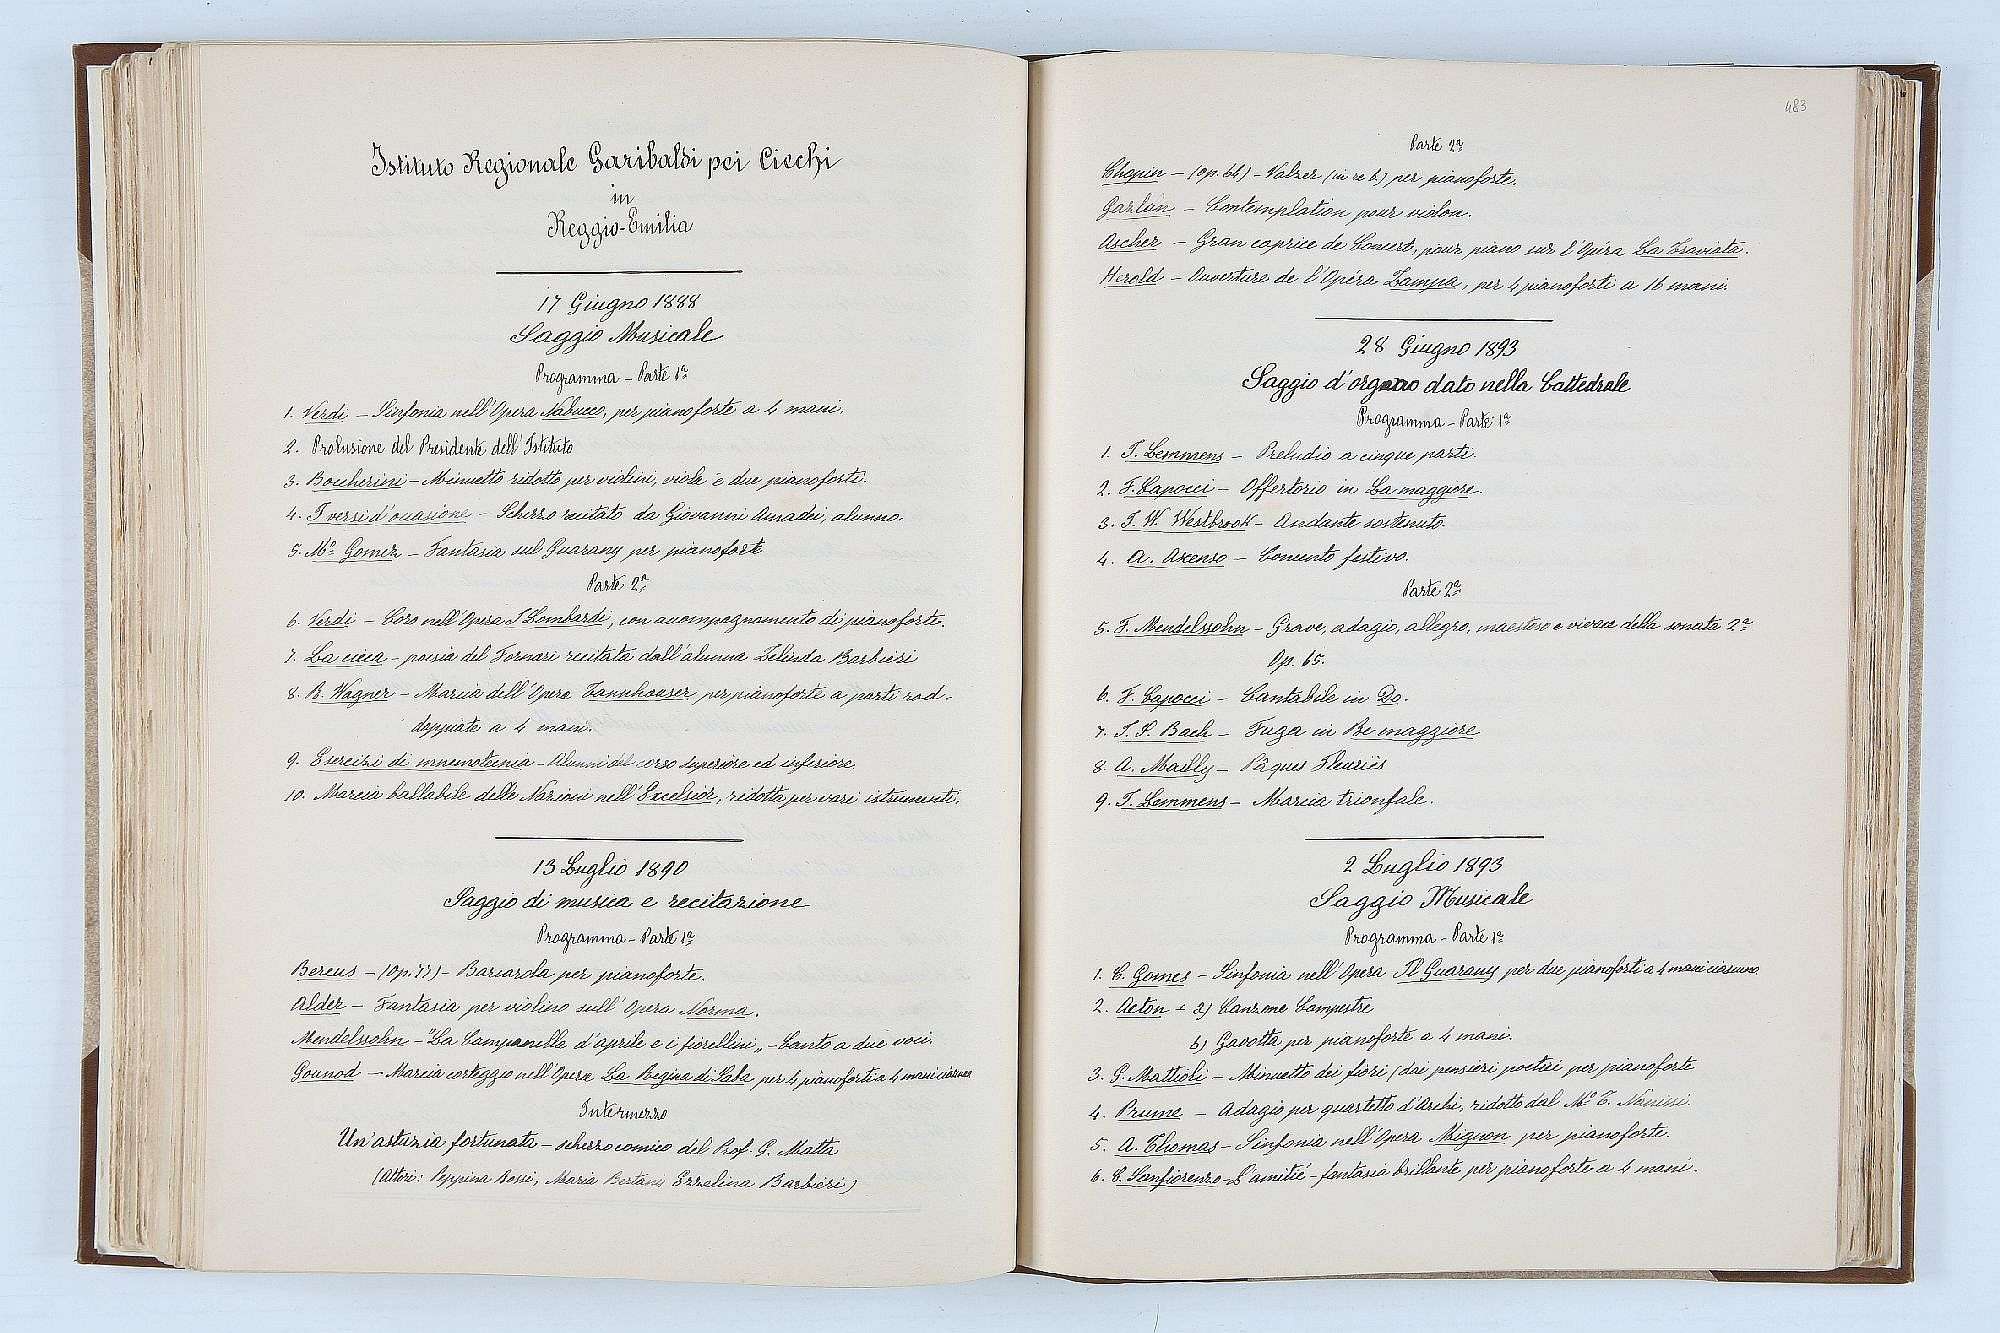 Istituto Regionale Garibaldi pei Ciechi
in
Reggio-Emilia
17 Giugno 1888
Saggio Musicale
Programma - Parte 1ª
1. Verdi - Sinfonia nell'Opera Nabucco, per pianoforte a 4 mani.
2. Prolusione del Presidente dell'Istituto
3. Boccherini - Minuetto ridotto per violini, viola e due pianoforte.
4. I versi d'occasione - Scherzo recitato da Giovanni Amadei, alunno.
5. Mº Gomez - Fantasia sul Guarany per pianoforte
Parte 2ª
6. Verdi - Coro nell'Opera I Lombardi, con accompagnamento di pianoforte.
7. La cieca - poesia del Fornari recitata dall'alunna Zelinda Barbieri
8. R. Wagner - Marcia dell'Opera Tannhauser per pianoforte a parti rad-
doppiate a 4 mani.
9. Esercizi di mnemotecnia - Alunni del corso superiore ed inferiore
10. Marcia ballabile delle Nazioni nell'Excelsior, ridotta per vari istrumenti.
13 Luglio 1890
Saggio di musica e recitazione
Programma - Parte 1ª
Bereus - (op. 77) - Barcarola per pianoforte.
Alder - Fantasia per violino sull'Opera Norma.
Mendelssohn - "La Campanella d'aprile e i fiorellini" - Canto a due voci.
Gounod - Marcia corteggio nell'Opera La Regina di Saba per 4 pianoforti a 4 mani ciascuno
Intermezzo
Un'astuzia fortunata - scherzo comico del Prof. G. Matta
(Attori: Peppina Bossi, Maria Bertani Ezzelina Barbieri)
483
Parte 2ª
Chopin - (op. 64) - Valzer (in re b.) per pianoforte.
Garlan - Contemplation pour violon.
Ascher - Gran caprice de Concert, pour piano sur l'Opéra La Traviata.
Herold - Ouverture de l'Opéra Zampa, per 4 pianoforti a 16 mani.
28 Giugno 1893
Saggio d'organo dato nella Cattedrale
Programma - Parte 1ª
1. J. Lemmens - Preludio a cinque parti.
2. F. Capocci - Offertorio in La maggiore.
3. J. W. Westbrook - Andante sostenuto.
4. A. Axenso - Concento festivo.
Parte 2ª
5. F. Mendelssohn - Grave, adagio, allegro, maestoso e vivace della sonata 2ª
Op. 65.
6. F. Capocci - Cantabile in Do.
7. J. S. Bach - Fuga in Re maggiore
8. A. Mailly - Pâques Fleuries
9. J. Lemmens - Marcia trionfale.
2 Luglio 1893
Saggio Musicale
Programma - Parte 1ª
1. C. Gomes - Sinfonia nell'Opera Il Guarany per due pianoforti a 4 mani ciascuno
2. Acton - a) Canzone Campestre
b) Gavotta per pianoforte a 4 mani.
3. G. Mattioli - Minuetto dei fiori (dai pensieri poetici per pianoforte
4. Prume - Adagio per quartetto d'Archi, ridotto dal Mº C. Nanini
5. A. Thomas - Sinfonia nell'Opera Mignon per pianoforte.
6. C. Sanfiorenzo - L'amitié - fantasia brillante per pianoforte a 4 mani.